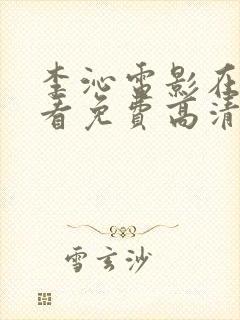 李沁电影在
看免费高清
雪玄沙